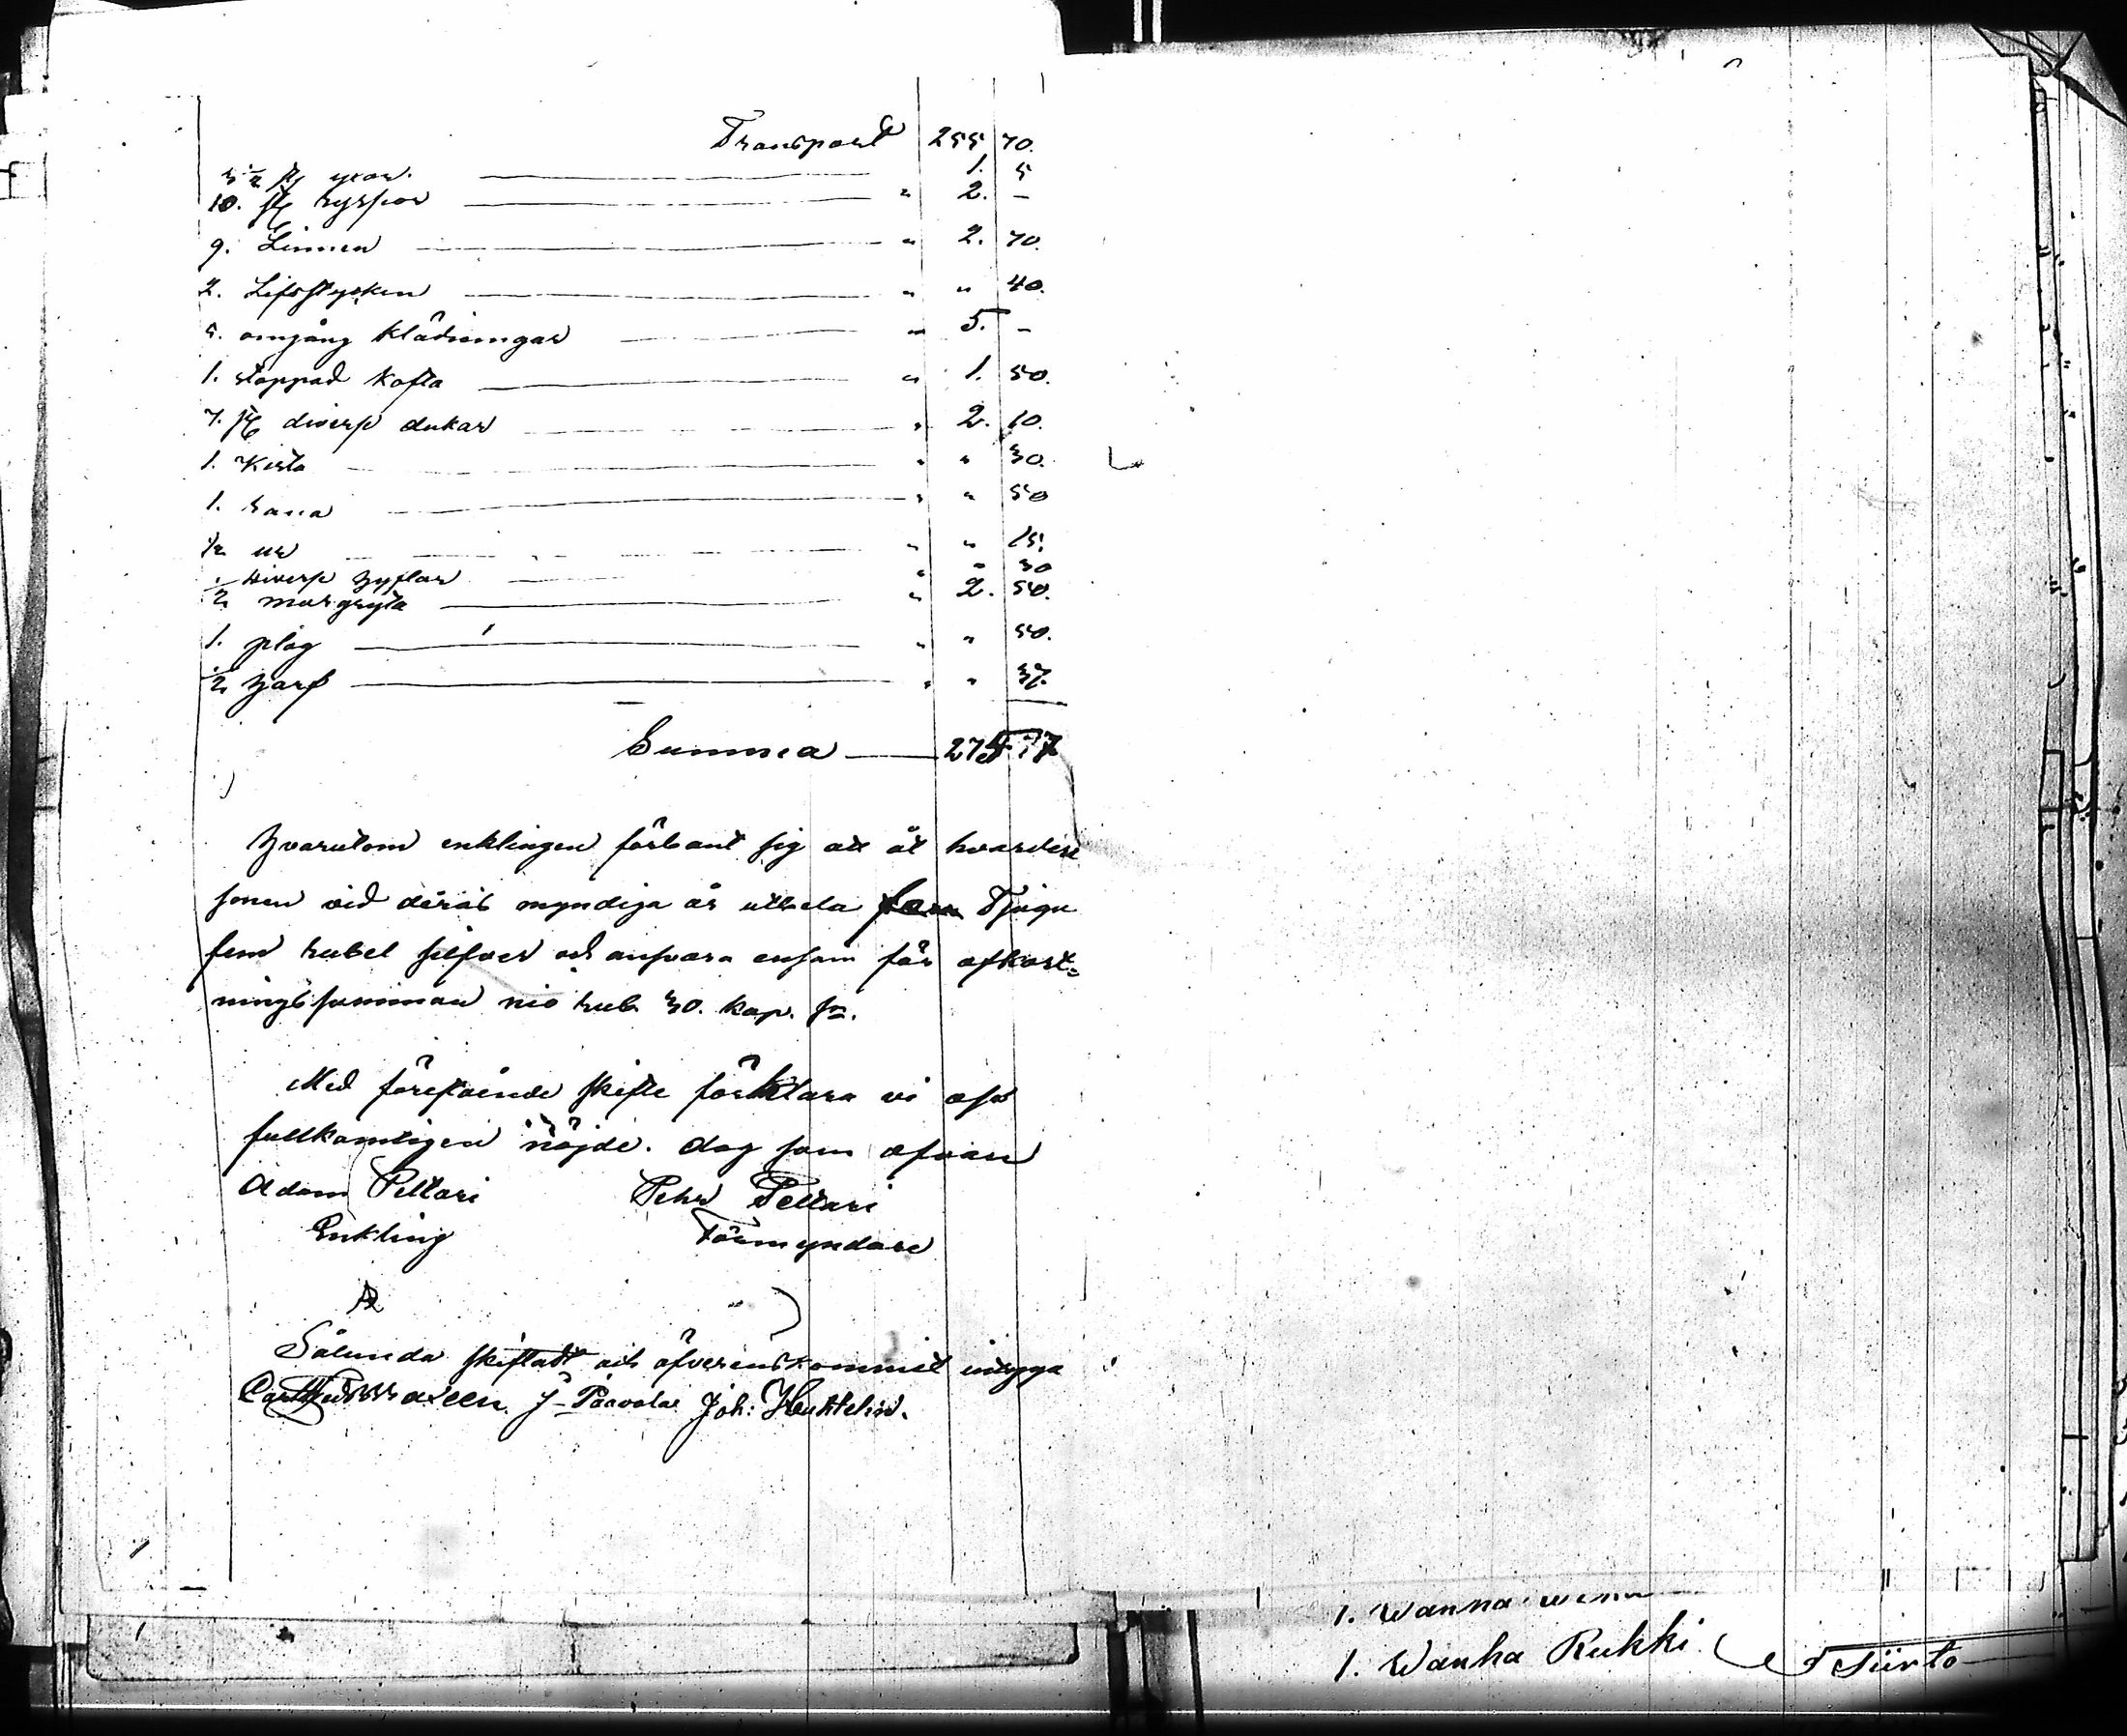 Transport 255 70.
3 1/2 st yxor. 1. 5
10. st ryssjor " 2. -
9. Linnen " 2. 70.
2. Lifsstycken " " 40.
5. omgång klädningar " 5. -
1. stoppad kofta " 1. 50.
7. st diverse dukar " 2. 10.
1. Kista " " 30.
1. " " 50
1/2 ur " " 15.
diverse " " 30
1/2 murgryta " 2. 50.
1. plog " " 50.
1/2 " " 37.
Summa 275 77
Hvarutom enklingen förbant sig att åt hvardera
sonen vid deras myndiga år utbetala Tjugu
fem rubel silfver och ansvara ensam för afkort=
ningssumman nio rub. 30. kop. sr.
Med förestående skifte förklara vi oss
fullkomligen nöjde. dag som ofvan
Adam Pettari Pehr Pettari
Enkling Förmyndare
Sålunda skiftadt och öfverenskommit intyga
J. Paavola Joh: Huhtelin.
1. Wanna
1. Wanha Rukki
Siirto